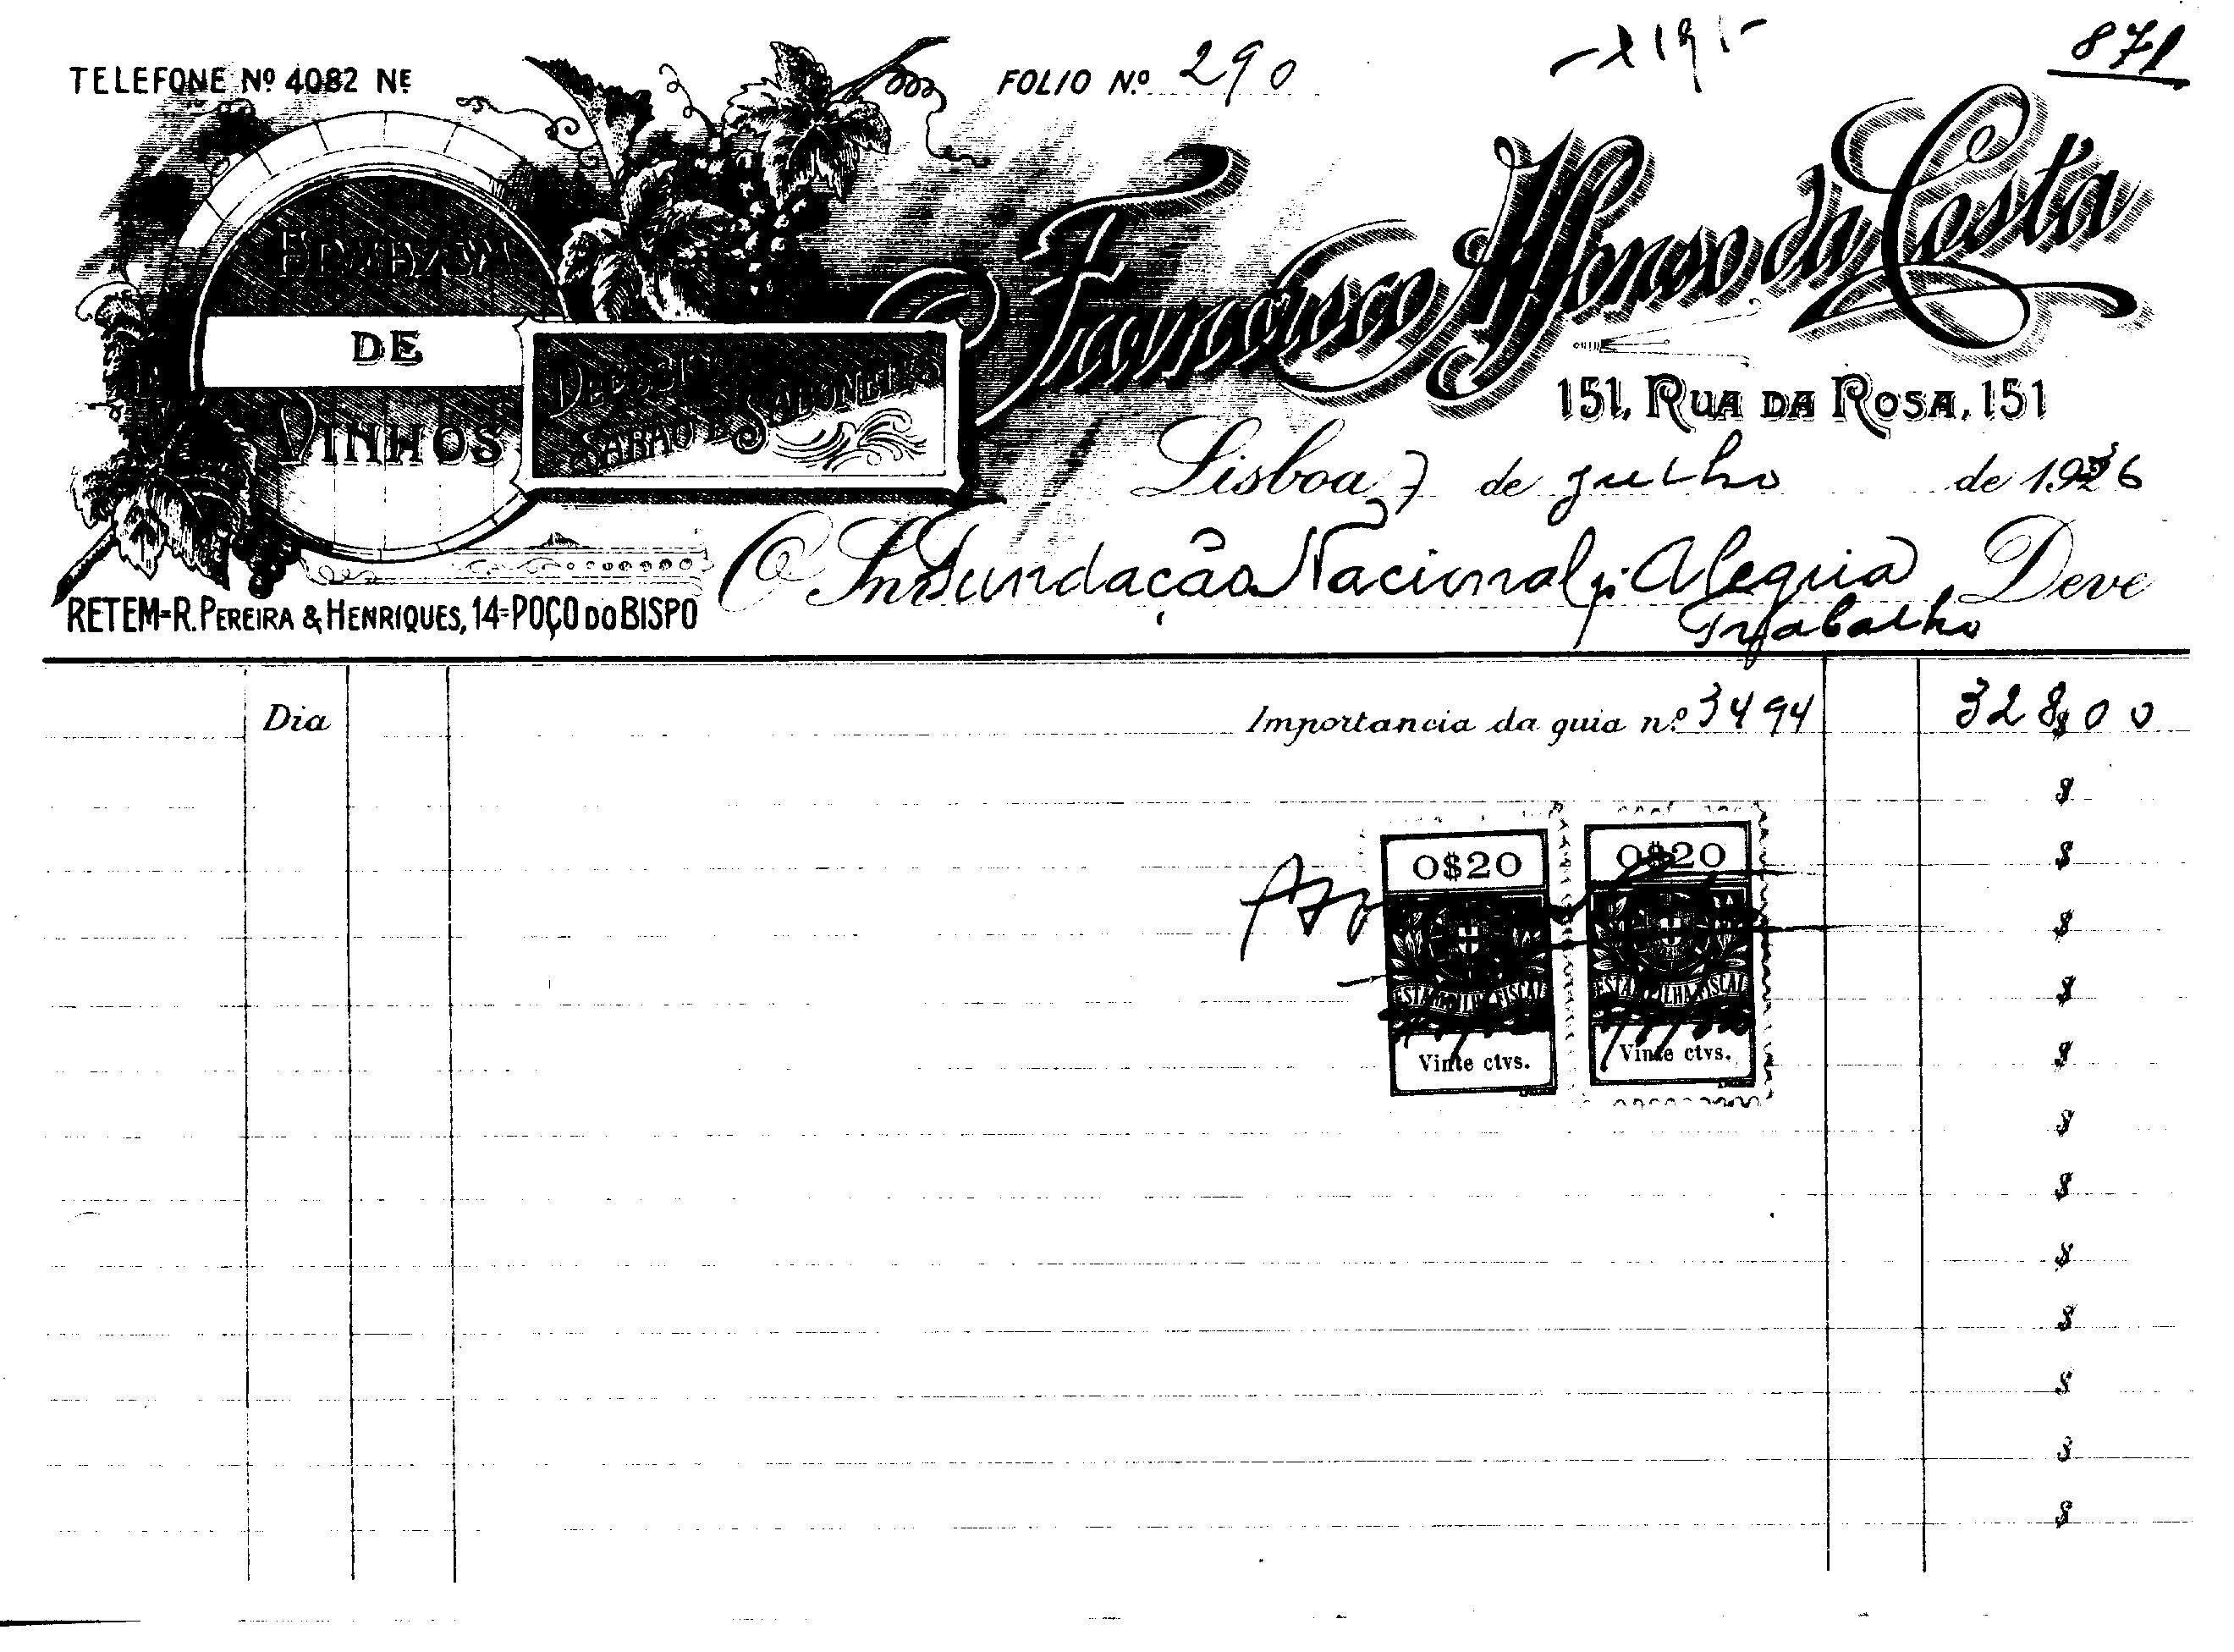 871
TELEFONE Nº 4082 NE
FOLIO Nº 290
Francisco Affonso da Costa
ARMAZEM
DE
VINHOS
DEPOSITO
SABÃO E SABONETES
151, RUA DA ROSA, 151
Lisboa, 7 de Julho de 1936
Fundação Nacional p. Alegria Deve
Trabalho
RETEM=R. PEREIRA & HENRIQUES, 14=POÇO DO BISPO
Dia Importancia da guia nº 3494 328$00
$
0$20 0$20
$
$
ESTAMPILHA FISCAL ESTAMPILHA FISCAL
$
Vinte ctvs. Vinte ctvs.
$
$
$
$
$
$
$
$